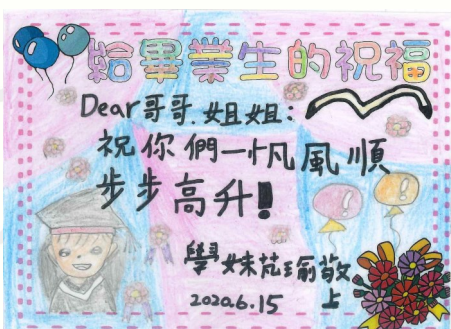 給畢業生的祝福
Dear哥哥.姐姐:
祝你們一帆風順
步步高升!
學妹芃瑜敬
上
2020.6.15